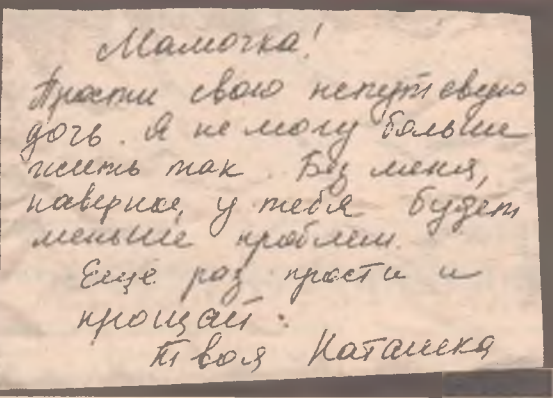 Мамочка!
Прости свою непутевую
дочь. Я не могу больше
жить так. Без меня,
наверное, у тебя будет
меньше проблем.
Еще раз прости и
прощай.
Твоя Наташка